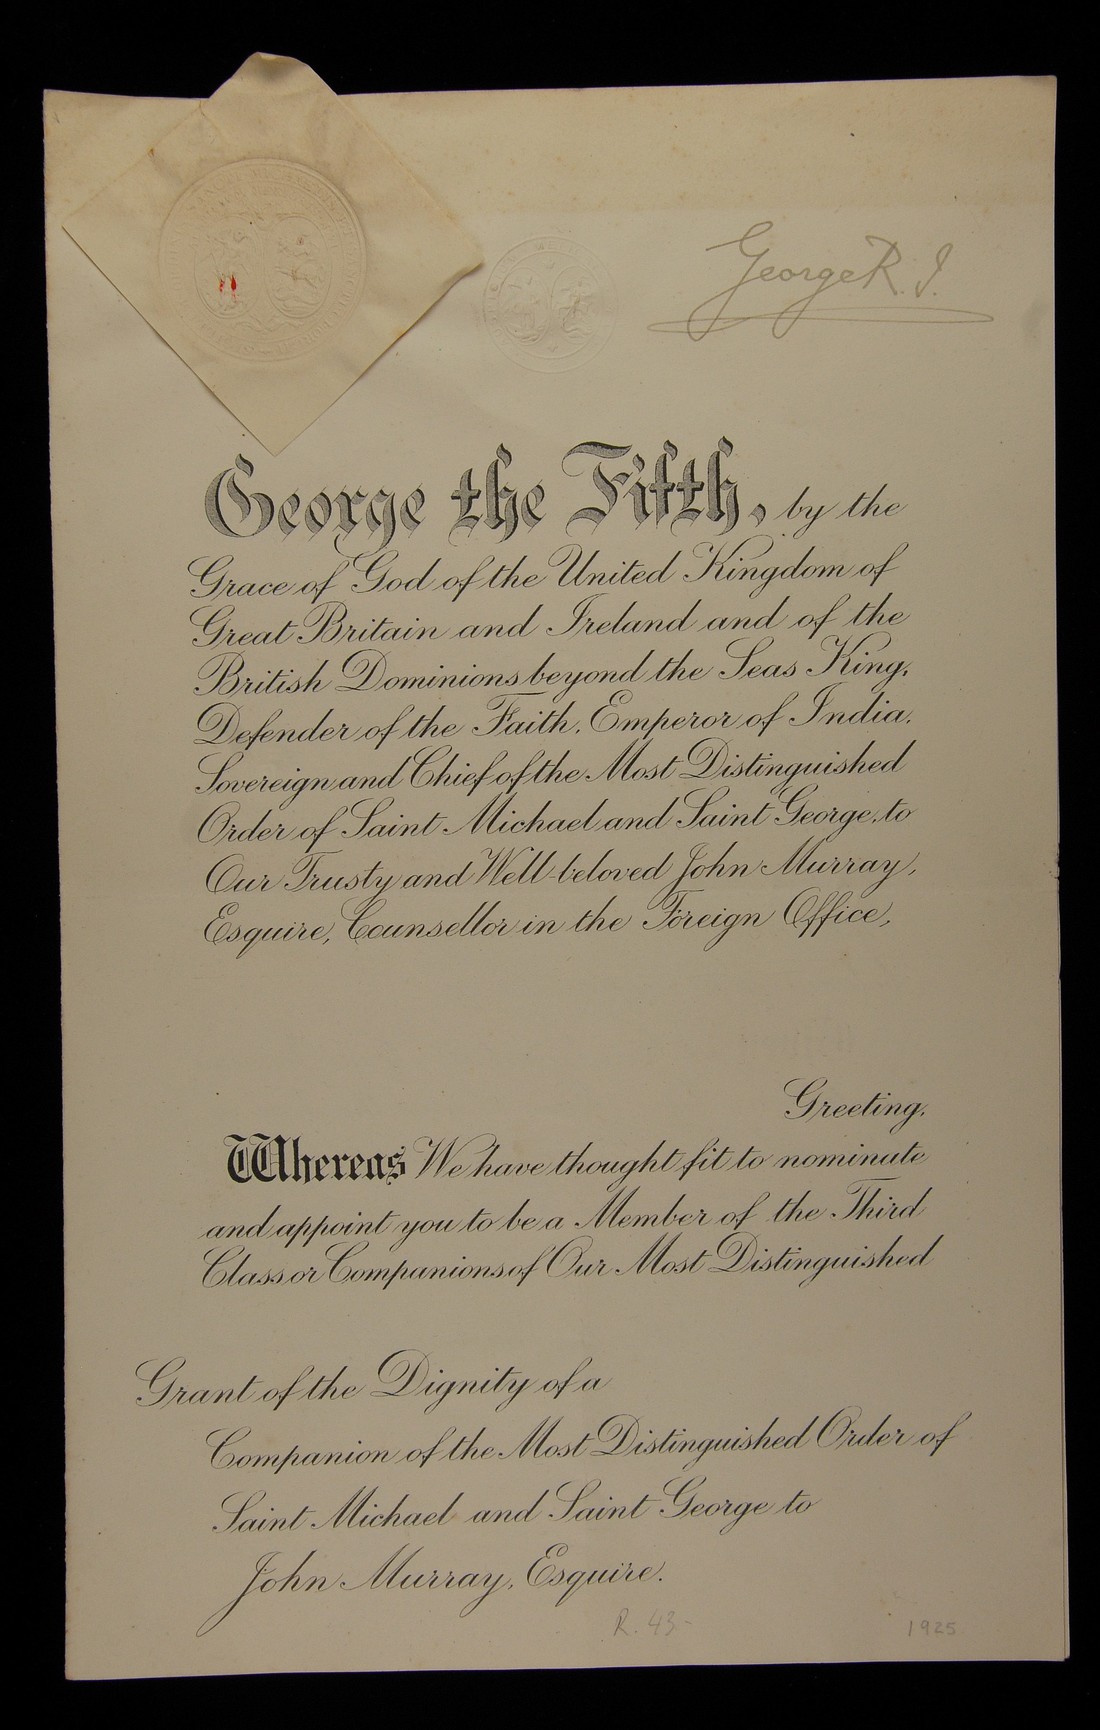 George R. I.
George the Fifth, by the
Grace of God of the United Kingdom of
Great Britain and Ireland and of the
British Dominions beyond the Seas King,
Defender of the Faith, Emperor of India,
Sovereign and Chief of the Most Distinguished
Order of Saint Michael and Saint George, to
Our Trusty and Well-beloved John Murray,
Esquire, Counsellor in the Foreign Office,
Greeting,
Whereas We have thought fit to nominate
and appoint you to be a Member of the Third
Class or Companions of Our Most Distinguished
Grant of the Dignity of a
Companion of the Most Distinguished Order of
Saint Michael and Saint George to
John Murray, Esquire.
R. 43-
1925